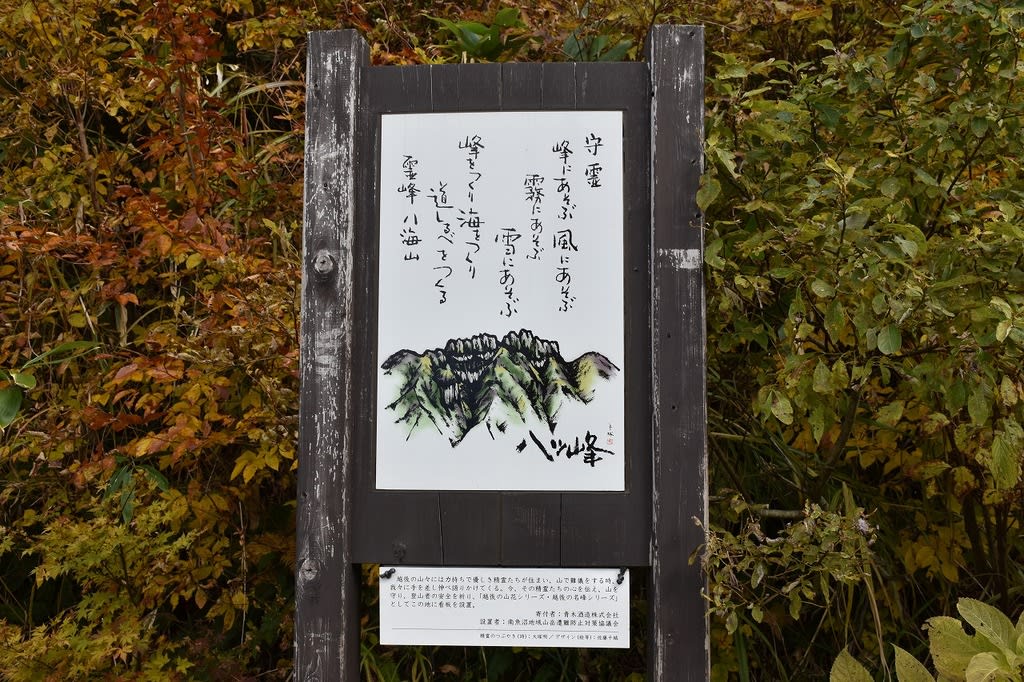 守霊
峰にあそぶ 風にあそぶ
霧にあそぶ
雪にあそぶ
峰をつくり海をつくり
道しるべをつくる
霊峰 八海山
八ツ峰
越後の山々には力持ちで優しき精霊たちが住まい、山で難儀をする時、
我々に手を差し伸べ語りかけてくる。今、その精霊たちの心を伝え、山を
守り、登山者の安全を祈り、「越後の山花シリーズ・越後の名峰シリーズ」
としてこの地に看板を設置。
寄付者：青木酒造株式会社
設置者：南魚沼地域山岳遭難防止対策協議会
精霊のつぶやき(詩)：大塚明／デザイン(絵等)：佐藤千暁